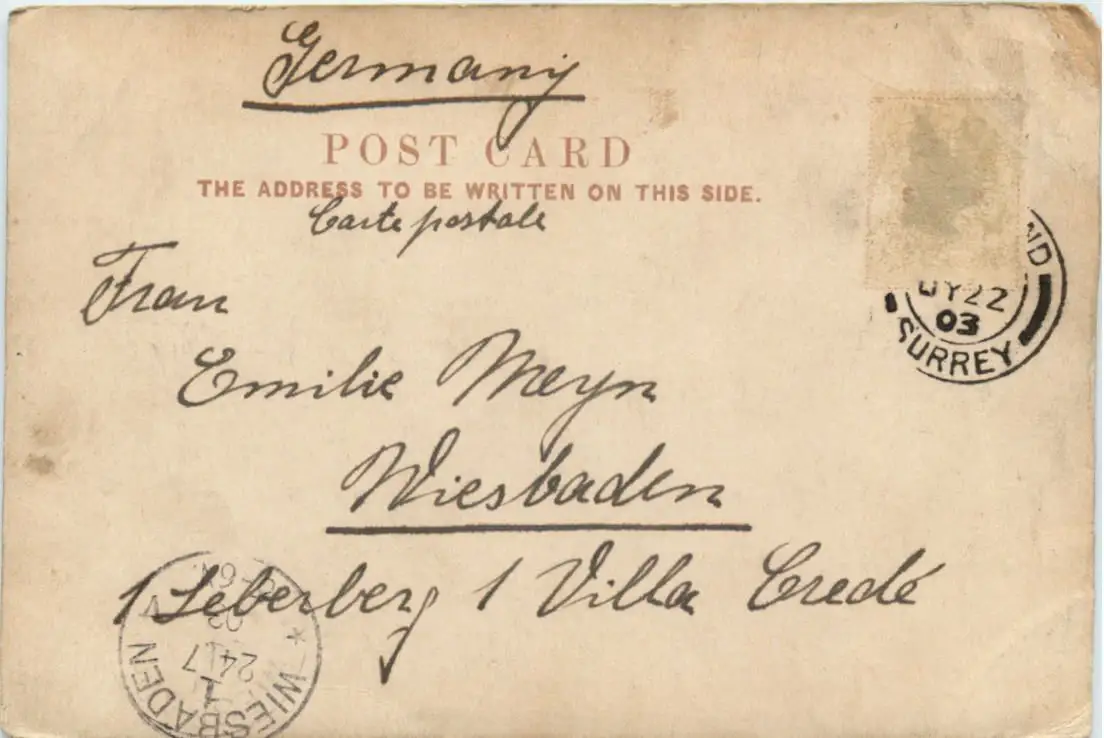 Germany
POST CARD
THE ADDRESS TO BE WRITTEN ON THIS SIDE.
Carte postale
Frau
Emilie Meyn
Wiesbaden
1 Leberberg 1 Villa Credé
JY 22
03
SURREY
WIESBADEN
1
24 7
03